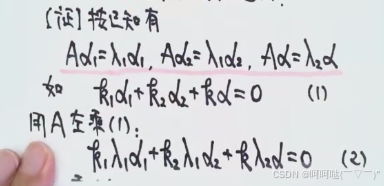 [证] 按已知有
Aα₁=λ₁α₁, Aα₂=λ₁α₂, Aα=λ₂α
如 k₁α₁+k₂α₂+kα=0 (1)
用A左乘(1):
k₁λ₁α₁+k₂λ₁α₂+kλ₂α=0 (2)
CSDN @呵呵哒(￣▽￣)"